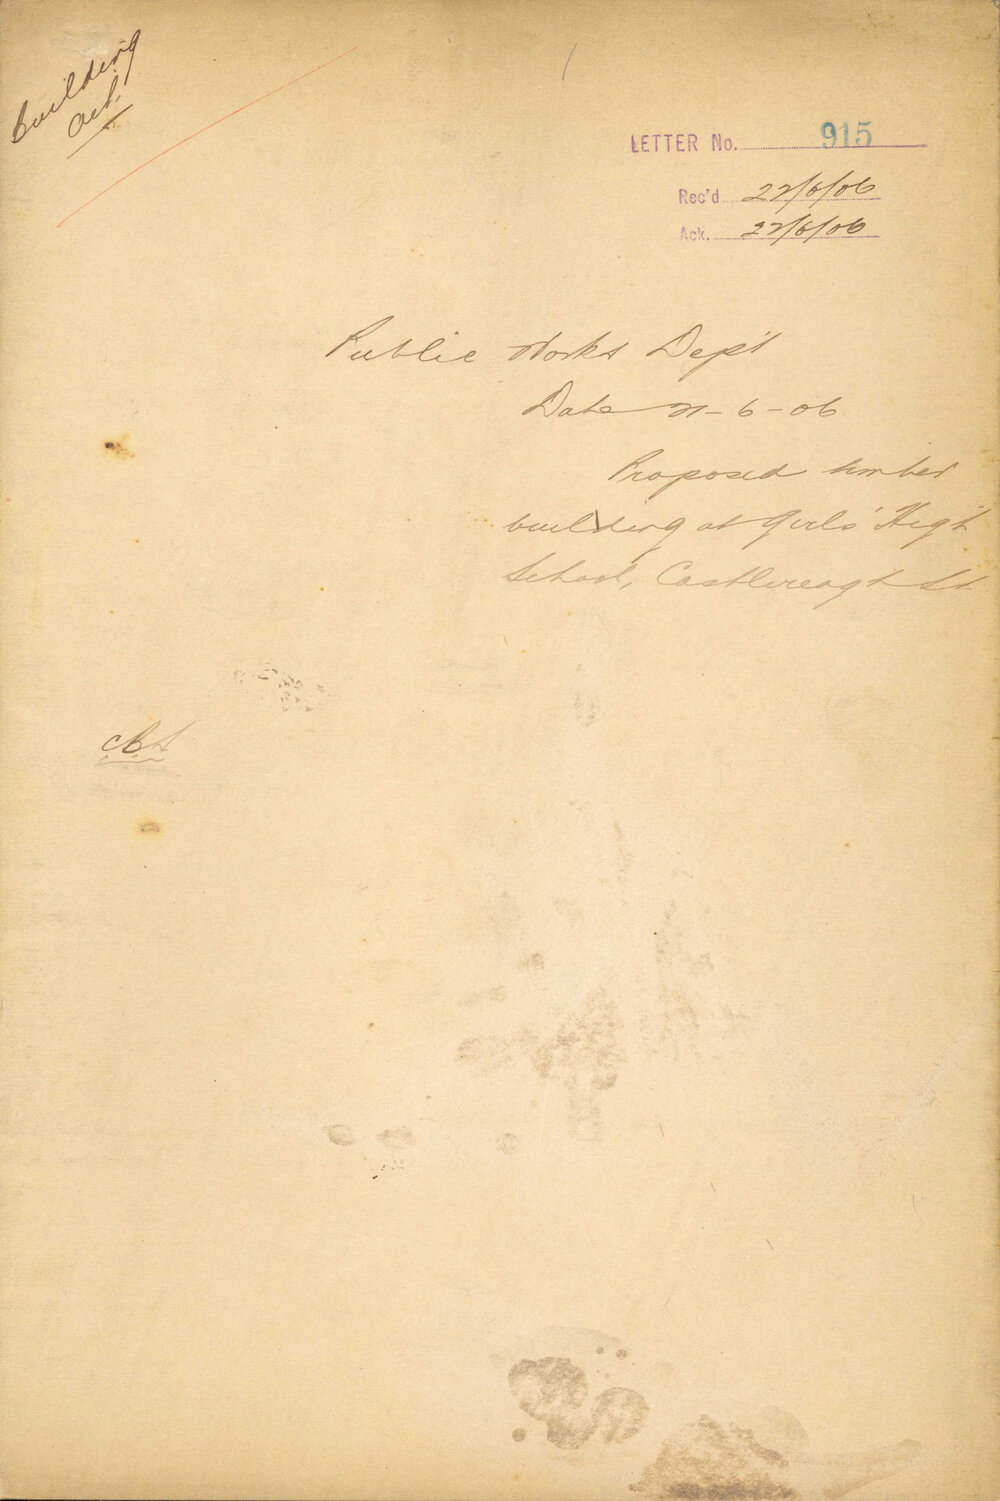 Building
Act.
LETTER No. 915
Rec'd 22/6/06
Ack. 22/6/06
Public Works Dep't
Date 21-6-06
Proposed timber
building at Girls' High
School, Castlereagh St.